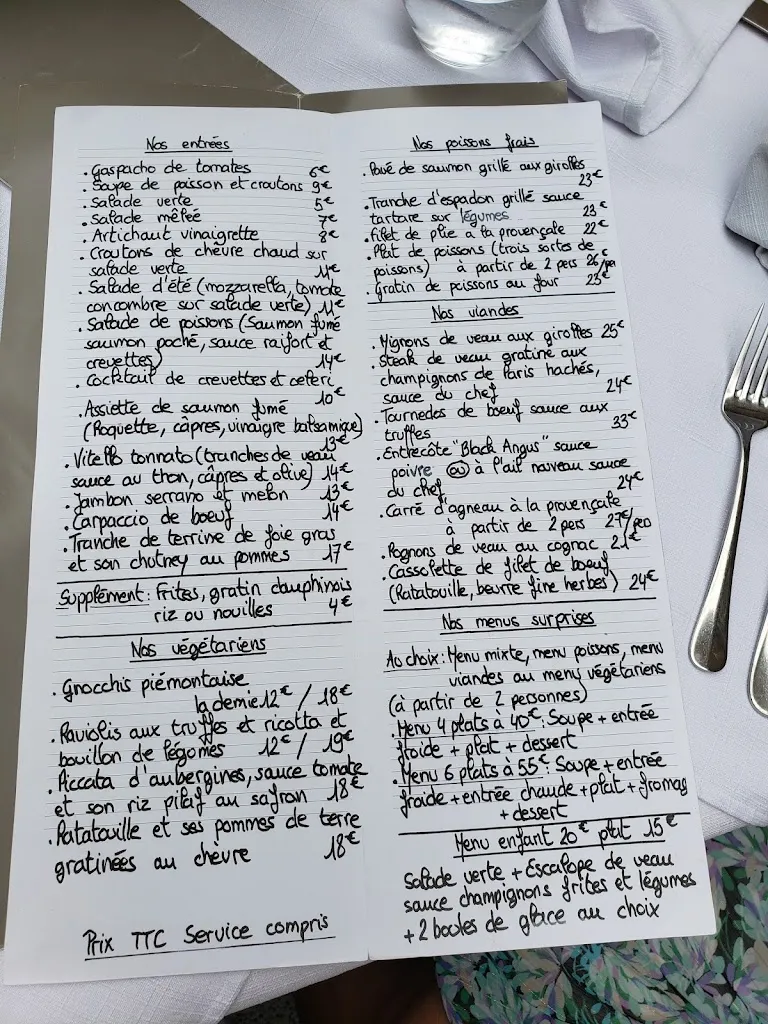 Nos entrées
. Gaspacho de tomates 6€
. Soupe de poisson et croutons 9€
. Salade verte 5€
. Salade mêleé 7€
. Artichaut vinaigrette 8€
. Croutons de chèvre chaud sur
salade verte 11€
. Salade d'été (mozzarella, tomate
concombre sur salade verte) 11€
. Salade de poissons (Saumon fumé
saumon poché, sauce raifort et
crevettes) 14€
. Cocktail de crevettes et celeri
10€
. Assiette de saumon fumé
(Roquette, câpres, vinaigre balsamique)
13€
. Vitello tonnato (tranches de veau
sauce au thon, câpres et olive) 14€
. Jambon serrano et melon 13€
. Carpaccio de boeuf 14€
. Tranche de terrine de foie gras
et son chutney au pommes 17€
Supplément: Frites, gratin dauphinois
riz ou nouilles 4€
Nos végétariens
. Gnocchis piémontaise
la demie 12€ / 18€
. Raviolis aux truffes et ricotta et
bouillon de légumes 12€ / 19€
. Piccata d'aubergines, sauce tomate
et son riz pilaf au safran 18€
. Ratatouille et ses pommes de terre
gratinées au chèvre 18€
Prix TTC Service compris
Nos poissons frais
. Pavé de saumon grillé aux girolles
23€
. Tranche d'espadon grillé sauce
tartare sur légumes 23€
. Filet de plie a la provençale 22€
. Plat de poissons (trois sortes de
poissons) à partir de 2 pers 26€/per
. Gratin de poissons au four 23€
Nos viandes
. Mignons de veau aux girolles 25€
. Steak de veau gratiné aux
champignons de Paris hachés,
sauce du chef 24€
. Tournedos de boeuf sauce aux
truffes 33€
. Entrecôte "Black Angus" sauce
poivre ou à l'ail nouveau sauce
du chef 24€
. Carré d'agneau à la provençale
à partir de 2 pers 27€/per
. Rognons de veau au cognac 21€
. Cassolette de filet de boeuf
(Ratatouille, beurre fine herbes) 24€
Nos menus surprises
Au choix: Menu mixte, menu poissons, menu
viandes au menu végétariens
(à partir de 2 personnes)
. Menu 4 plats à 40€: Soupe + entrée
froide + plat + dessert
. Menu 6 plats à 55€: Soupe + entrée
froide + entrée chaude + plat + fromag
+ dessert
Menu enfant 20€ plat 15€
Salade verte + Escalope de veau
sauce champignons frites et légumes
+ 2 boules de glace au choix